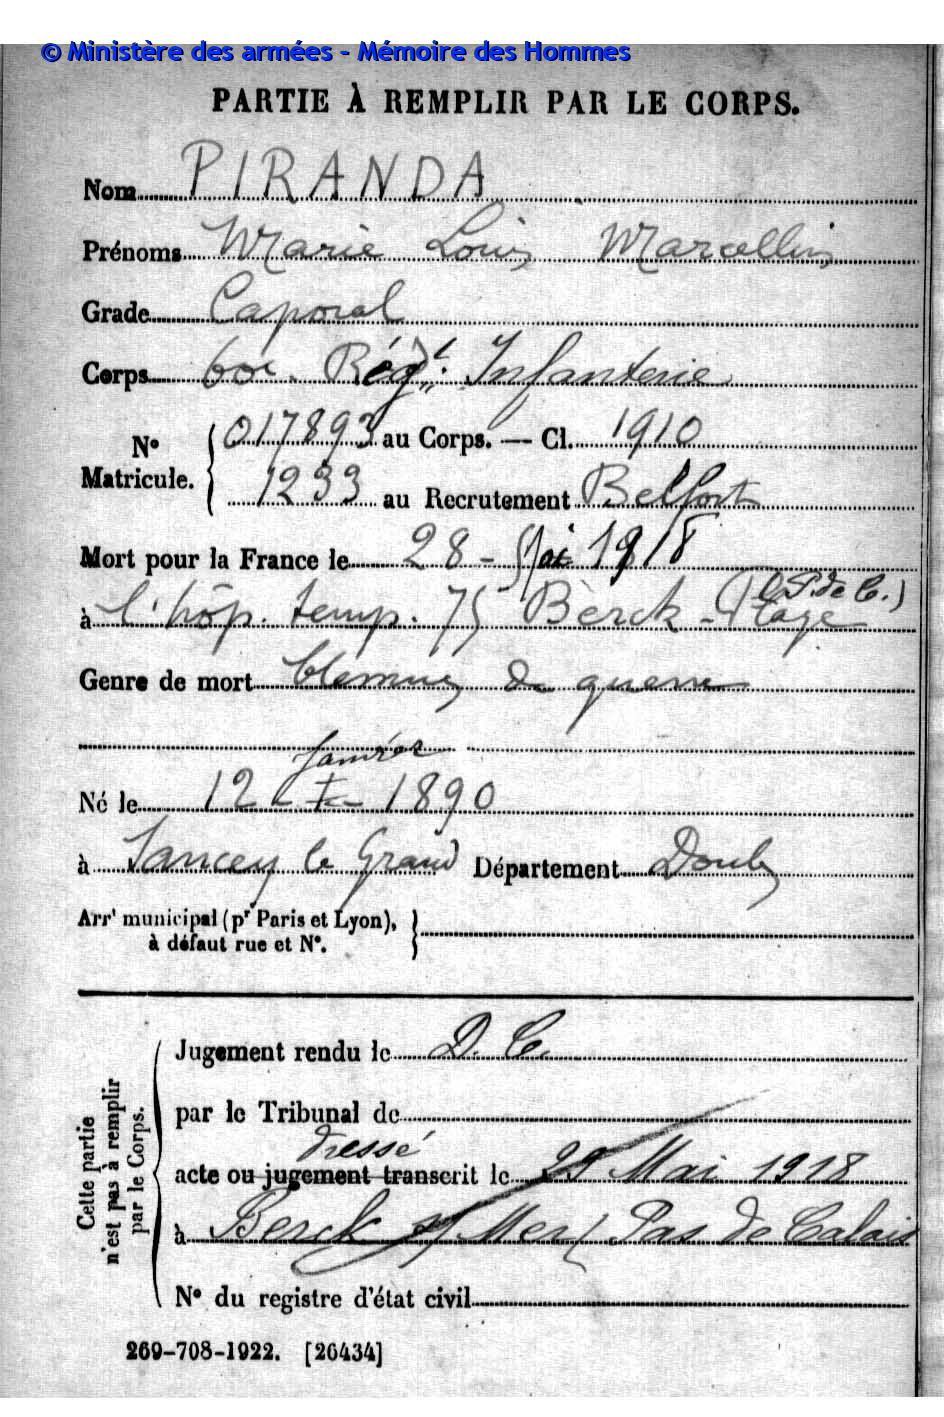 © Ministère des armées - Mémoire des Hommes
PARTIE À REMPLIR PAR LE CORPS.
Nom PIRANDA
Prénoms Marie Louis Marcellin
Grade Caporal
Corps 60e Régt. Infanterie
No Matricule. { 017893 au Corps. — Cl. 1910
1233 au Recrutement Belfort
Mort pour la France le 28 - Mai 1918
(P. de C.)
à l'hôp. temp. 75 Berck-Plage
Genre de mort blessures de guerre
Janvier
Né le 12 - I - 1890
à Sancey le Grand Département Doubs
Arrt municipal (pr Paris et Lyon),
à défaut rue et No. }
Cette partie
n'est pas à remplir
par le Corps.
Jugement rendu le D. C.
par le Tribunal de
dressé
acte ou jugement transcrit le 29 Mai 1918
à Berck s/ Mer / Pas de Calais
No du registre d'état civil
269-708-1922. [26434]